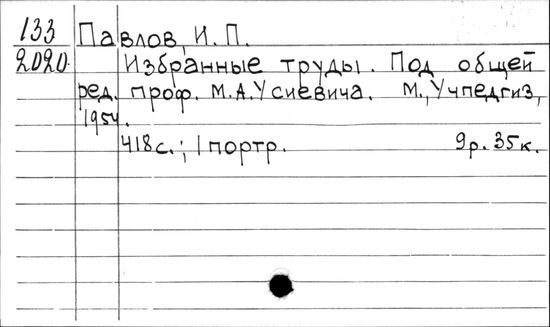 133 Павлов, И. П.
2020 Избранные труды. Под общей
ред. проф. М.А.Усиевича. М., Учпедгиз,
1954.
418с.; 1 портр. 9р. 35к.